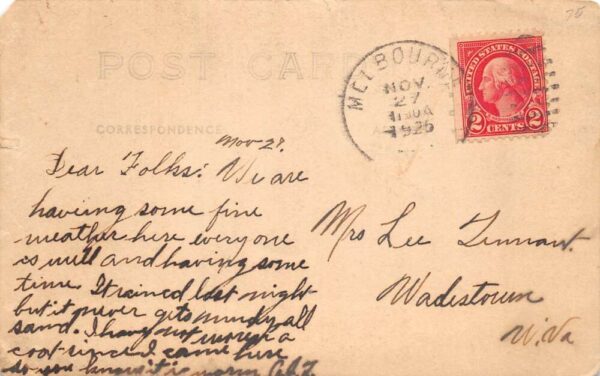 75
POST CARD
CORRESPONDENCE
MELBOURNE
NOV.
27
1925
UNITED STATES POSTAGE
2 CENTS 2
Nov-27.
Dear Folks: We are
having some fine
weather here every one
is well and having some
time. It rained last night
but it never gets muddy all
sand. I have not worn a
coat since I came here
so you know it is warm
Mrs Lee Tennant.
Wadestown
W. Va